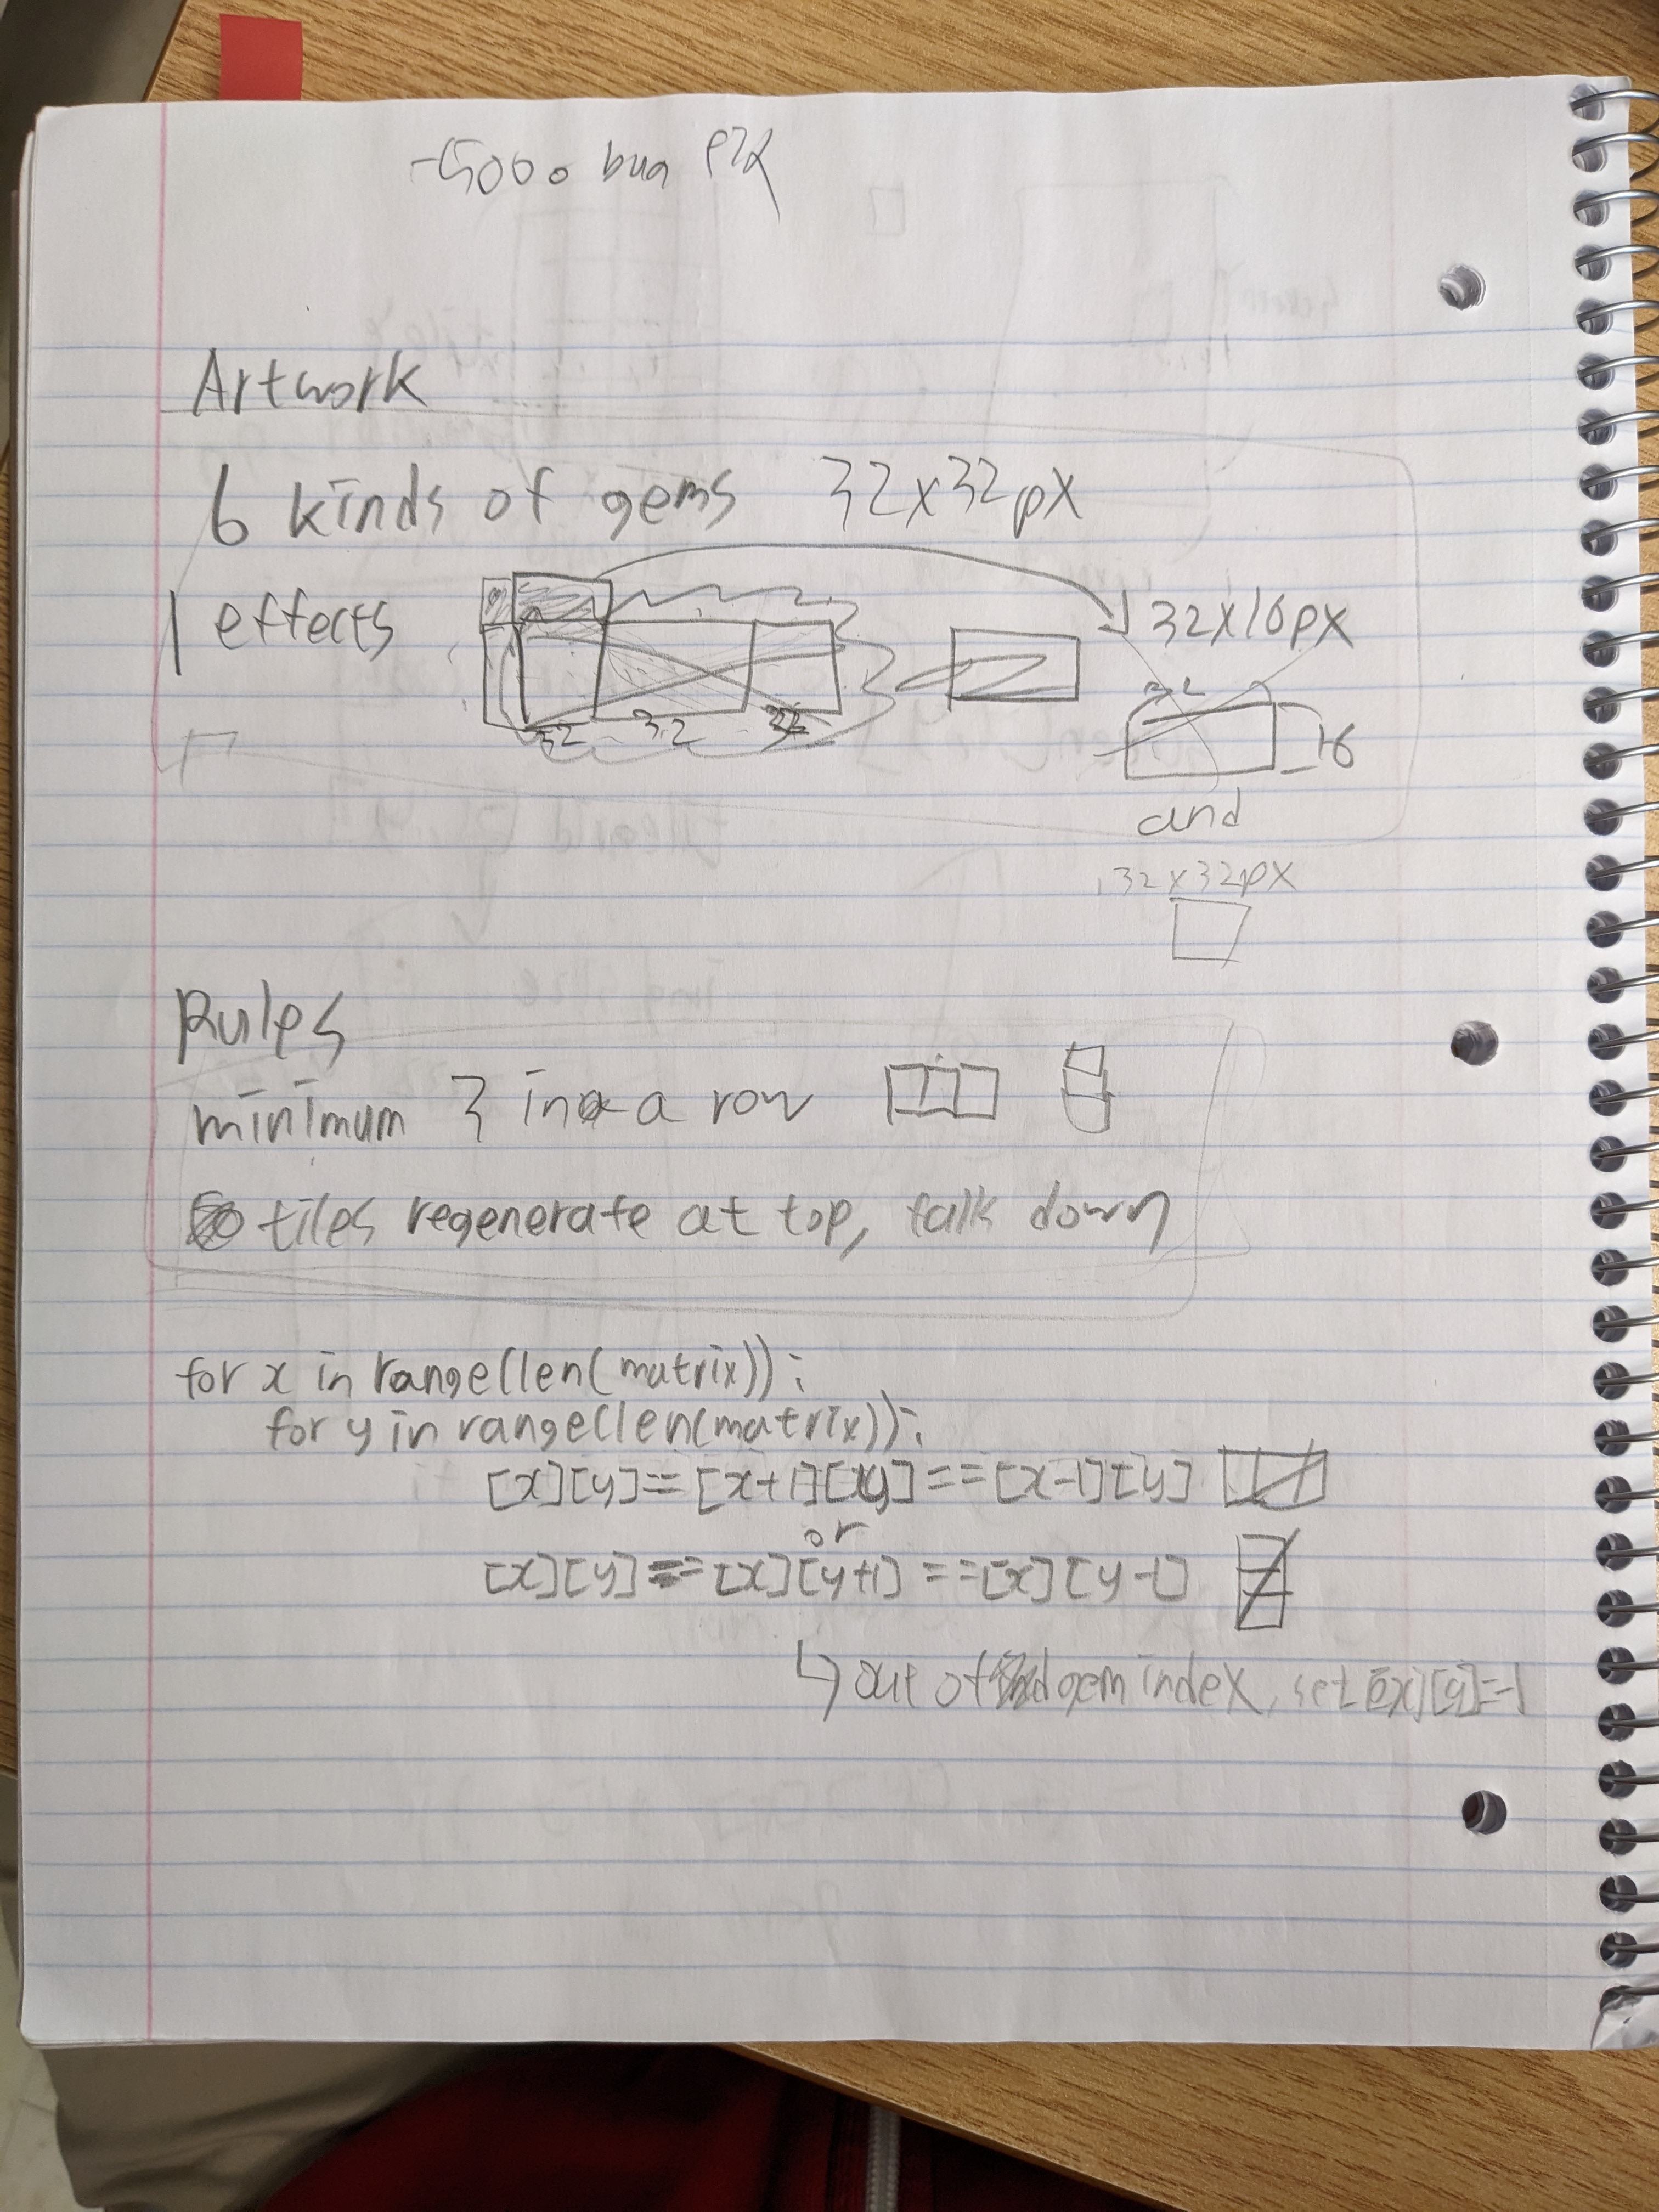 Artwork
6 kinds of gems 32x32px
1 effects
32x16px
32 32 32
32
16
and
32x32px
Rules
minimum 3 in a row
tiles regenerate at top, fall down
for x in range(len(matrix)):
for y in range(len(matrix)):
[x][y]==[x+1][y]==[x-1][y]
or
[x][y]==[x][y+1]==[x][y-1]
↳ out of gem index, set [x][y]=-1